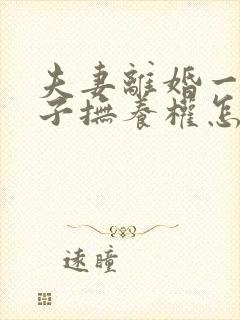 夫妻離婚一
子撫養權怎
遠瞳